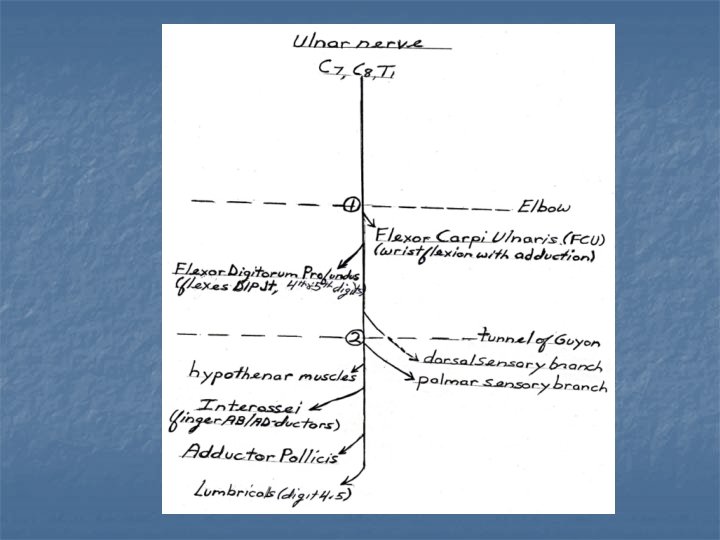 Ulnar nerve
C7, C8, T1
1
Elbow
Flexor Carpi Ulnaris (FCU)
(wrist flexion with adduction)
Flexor Digitorum Profundus
(flexes DIPJt, 4th+5th digits)
2
tunnel of Guyon
dorsal sensory branch
hypothenar muscles
palmar sensory branch
Interossei
(finger AB/AD-ductors)
Adductor Pollicis
Lumbricals (digit 4,5)